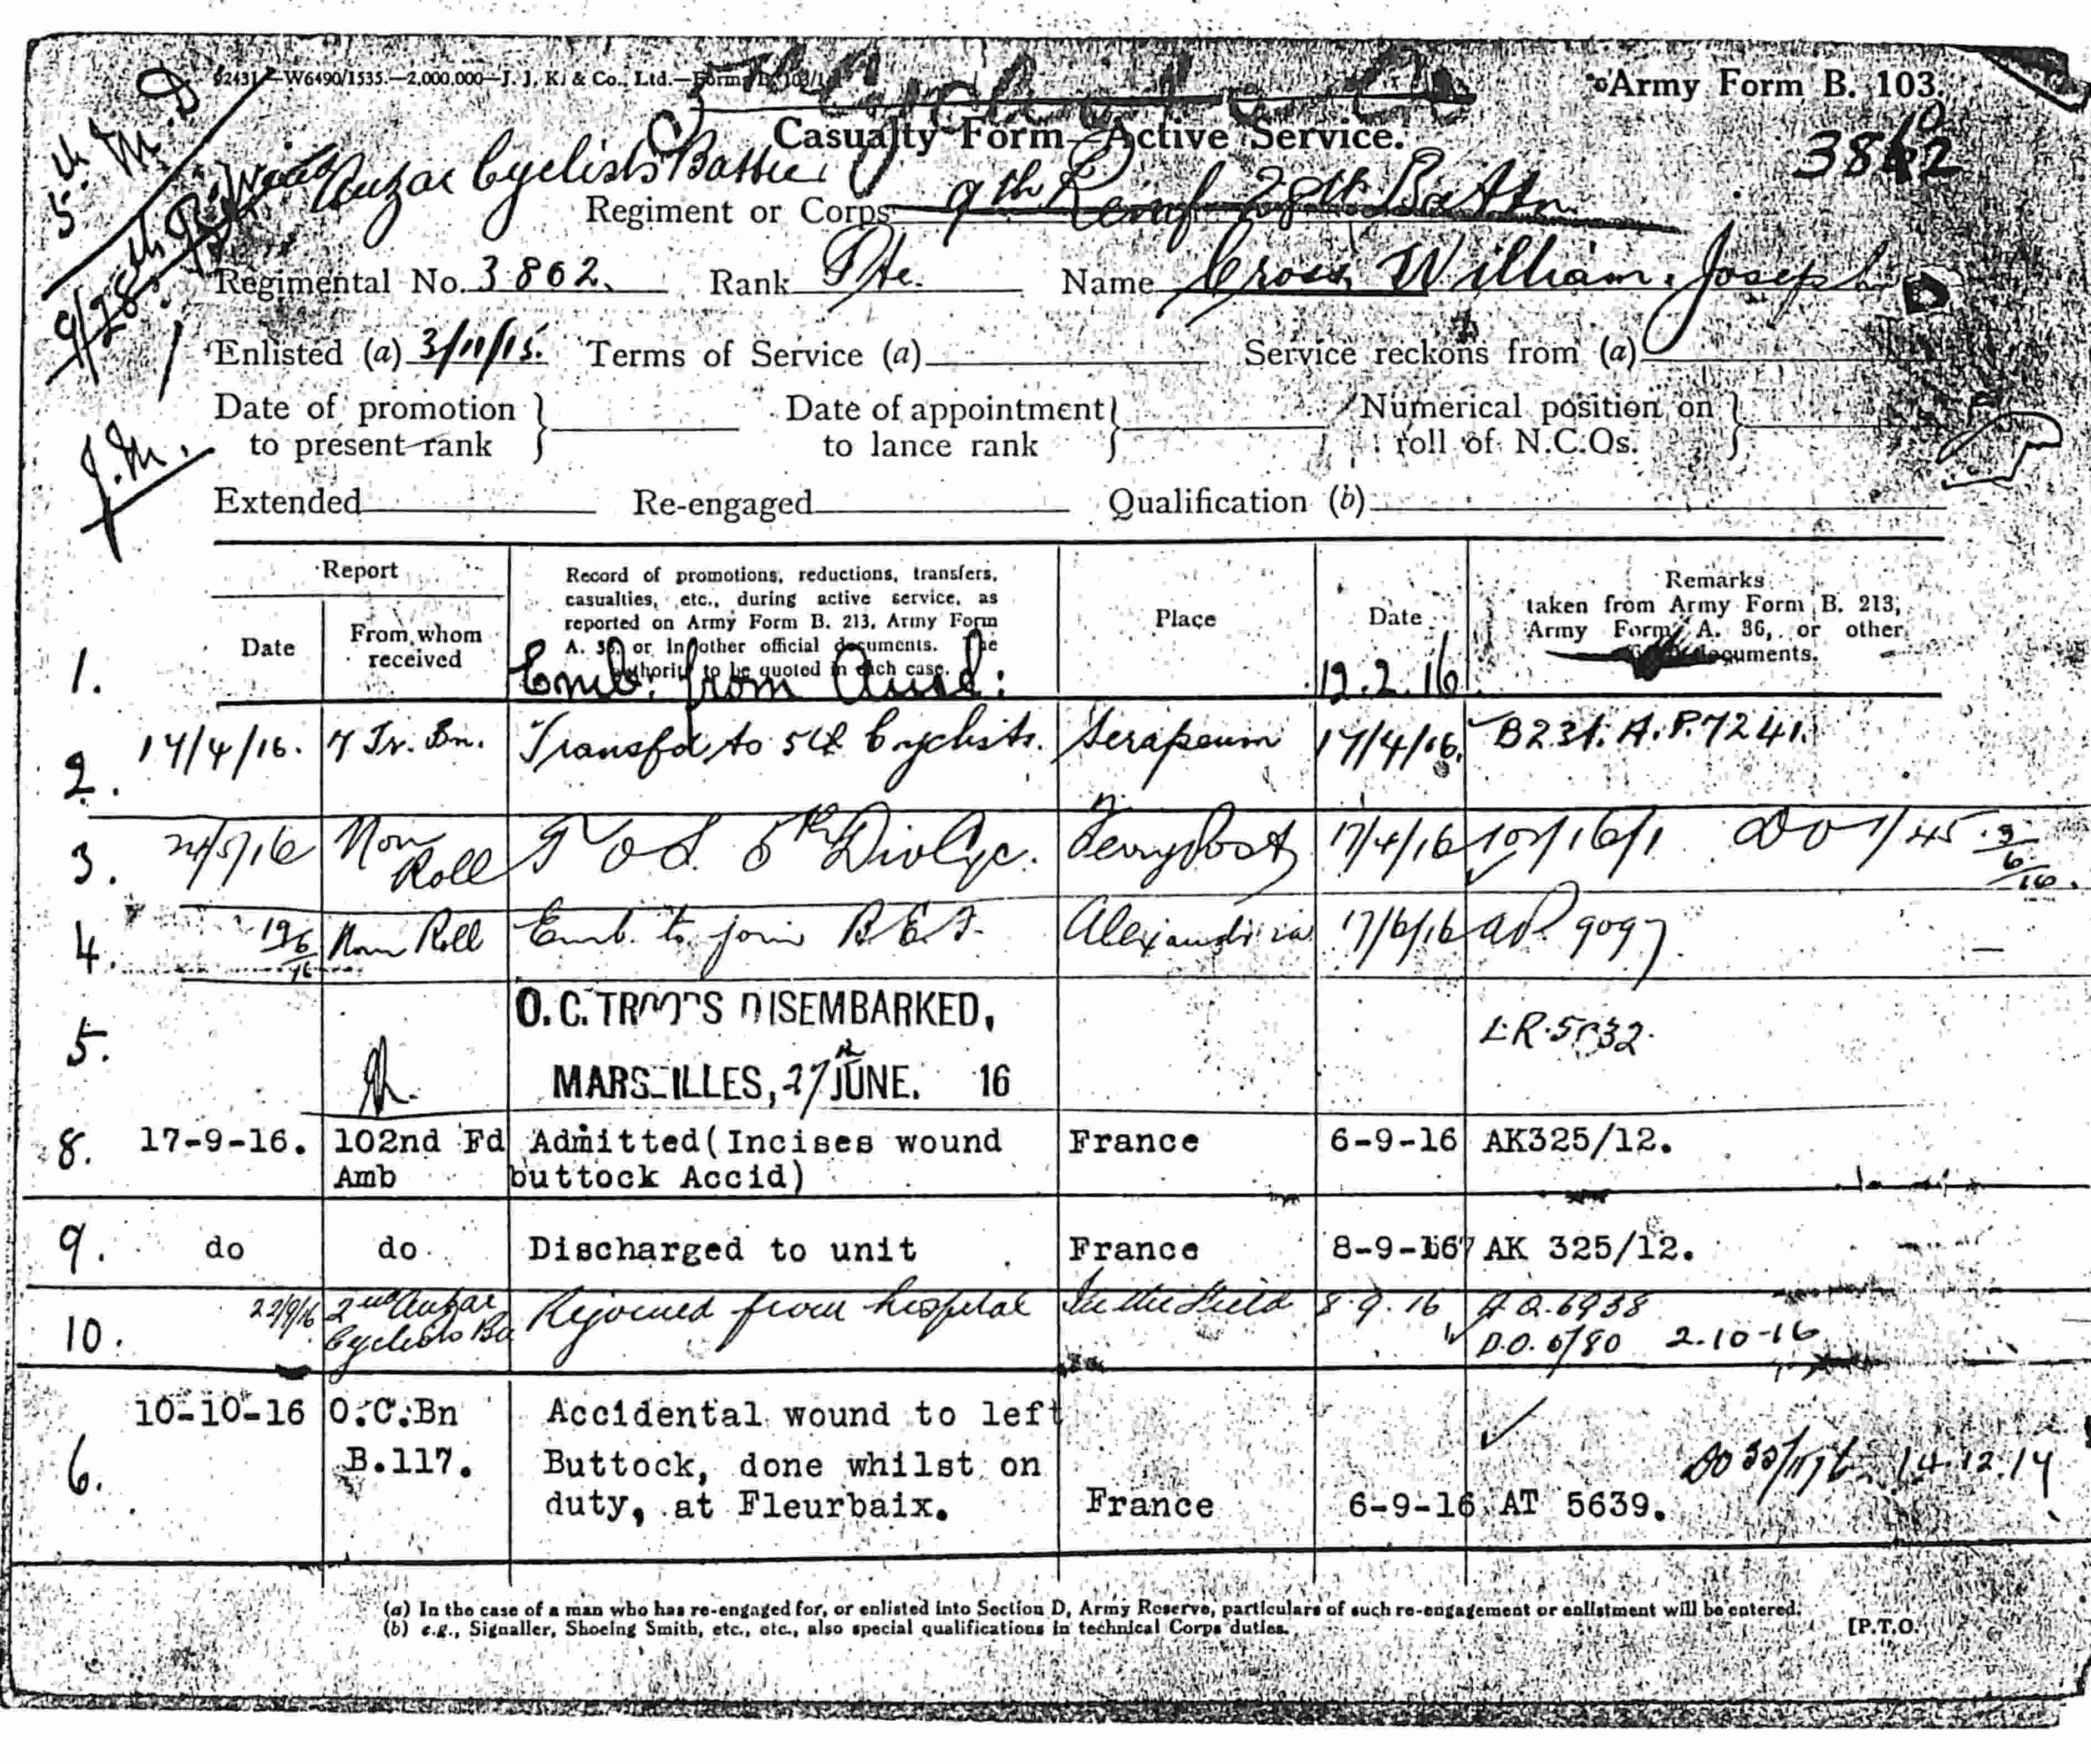 W6490/1535.—2,000,000—J. J. K. & Co., Ltd.—Form
Army Form B. 103.
Casualty Form—Active Service.
3862
Anzac Cyclists Battn
Regiment or Corps 9th Reinf 28th Battn
Regimental No. 3862. Rank Pte. Name Cross William Joseph
Enlisted (a) 3/11/15. Terms of Service (a) Service reckons from (a)
Date of promotion to present rank } Date of appointment to lance rank } Numerical position on roll of N.C.Os. }
J.M.
Extended Re-engaged Qualification (b)
Report
Date
From whom received
Record of promotions, reductions, transfers,
casualties, etc., during active service, as
reported on Army Form B. 213, Army Form
A. 36, or in other official documents. The
authority to be quoted in each case.
Place
Date
Remarks
taken from Army Form B. 213,
Army Form A. 36, or other
documents.
1. Emb. from Aust: 12.2.16
2. 17/4/16. 7 Tr. Bn. Transfd to 5th Cyclists. Serapeum 17/4/16. B231. A.P.7241.
3. 24/5/16 Nom Roll T O S. 5th Div Cyc. Ferry Post 17/4/16 101/16/1 DO 1/45 3/6/16.
4. 19/6/16 Nom Roll Emb. to join B.E.F. Alexandria 17/6/16 AP 9097
5. O.C. TROOPS DISEMBARKED,
MARSEILLES, 27 JUNE. 16
8. 17-9-16. 102nd Fd Amb Admitted(Incises wound buttock Accid) France 6-9-16 AK325/12.
9. do do Discharged to unit France 8-9-16 AK 325/12.
10. 22/9/16 2nd Anzac Cyclists Ba Rejoined from hospital In the Field 8.9.16 AQ.6938
D.O. 6/80 2-10-16
6. 10-10-16 O.C.Bn B.117. Accidental wound to left
Buttock, done whilst on
duty, at Fleurbaix. France 6-9-16 AT 5639.
(a) In the case of a man who has re-engaged for, or enlisted into Section D, Army Reserve, particulars of such re-engagement or enlistment will be entered.
(b) e.g., Signaller, Shoeing Smith, etc., etc., also special qualifications in technical Corps duties.
[P.T.O.